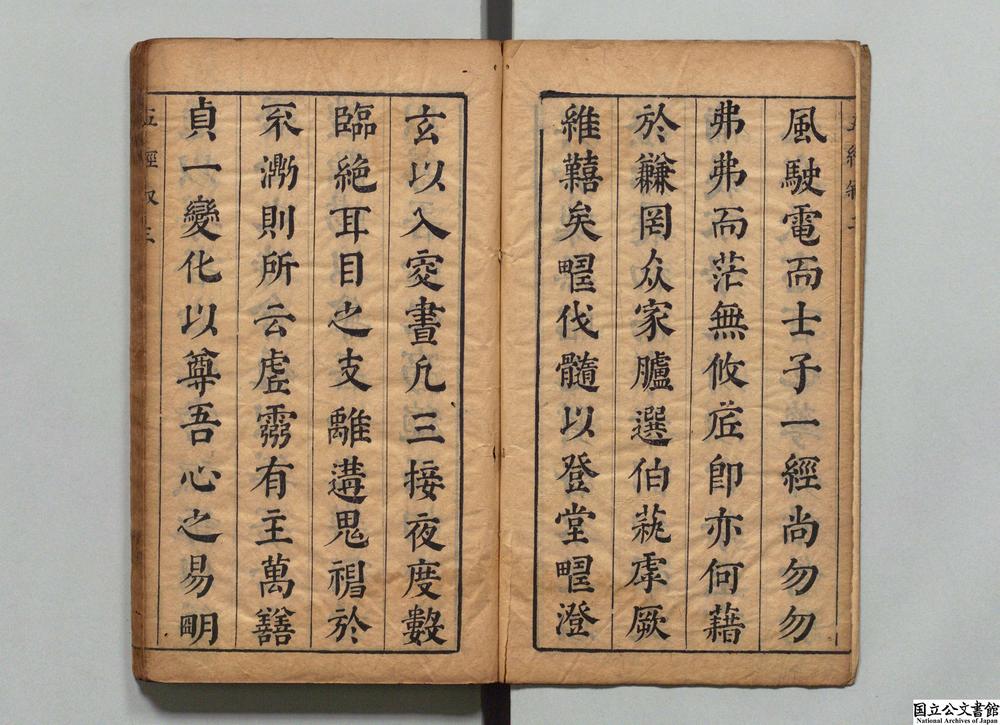 風駛電而士子一經尚勿勿
弗弗而茫無攸底卽亦何藉
於罔众家臚選伯厥
維矣伐髓以登堂澄
玄以入窔晝凡三接夜度數
臨絶耳目之支離遘鬼禍於
不漸則所云虛霛有主萬善
貞一變化以尊吾心之易明
五經叙
三
国立公文書館
National Archives of Japan